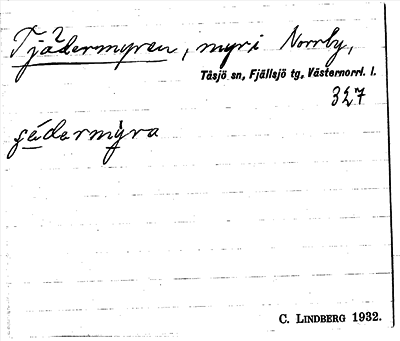 Tjädermyren, myr i Norrby,
Tåsjö sn, Fjällsjö tg, Västernorrl. l.
327
C. LINDBERG 1932.